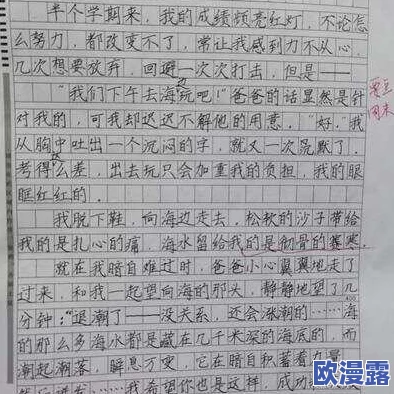 半个学期来，我的成绩频亮红灯，不论怎
么努力，都改变不了，常让我感到力不从心
几次想要放弃，回避一次次打击，但是——
“我们下午去海边玩吧！”爸爸的话显然是针
对我的，可我却迟迟不解他的用意，“好。”我
从胸中吐出一个沉闷的字，就又一次沉默了。
考得这么差，出去玩只会加重我的负担，我的眼
眶红红的。
我脱下鞋，向海边走去，松软的沙子带给
我的是扎心的痛，海水留给我的是彻骨的寒。
就在我暗自难过时，爸爸小心翼翼地走了
过来，和我一起望向海的那头，静静地望了几
400
分钟：“退潮了——没关系，还会涨潮的……海
的那么多海水都是藏在几千米深的海底的，而
潮起潮落，瞬息万变，它在暗自积蓄着力量
我希望你也是这样，成功
周末
欧漫露